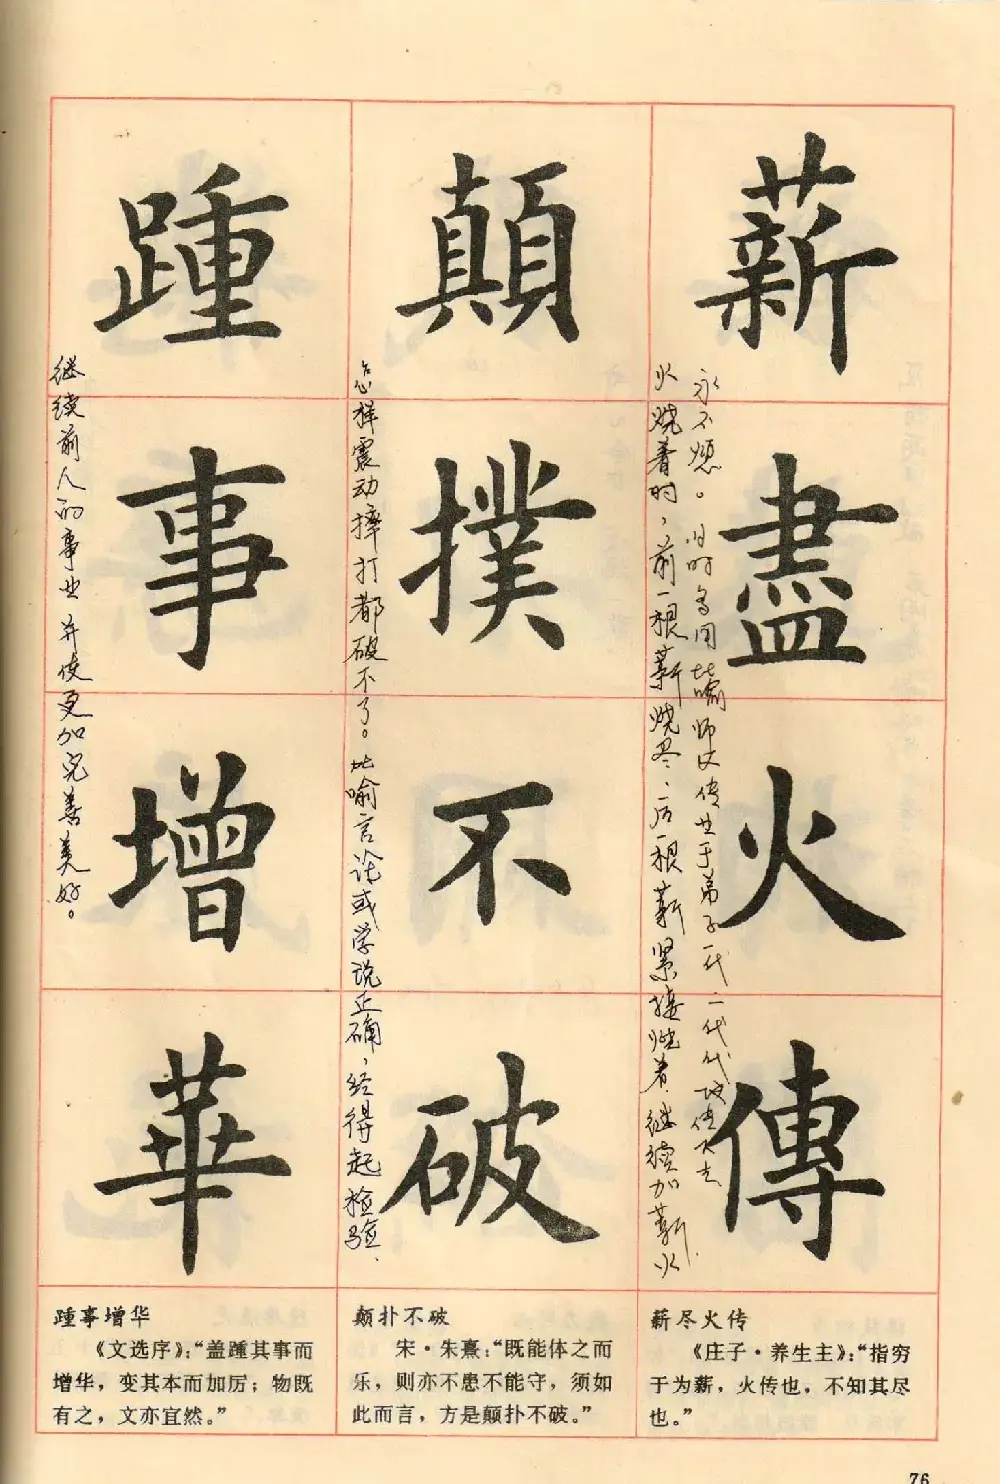 薪盡火傳
火烧着时，前一根薪烧尽，后一根薪紧接烧着，继续加薪火
永不熄。旧时多用比喻师父传业于弟子一代一代代地传下去
顛撲不破
怎样震动摔打都破不了。比喻言论或学说正确，经得起检验.
踵事增華
继续前人的事业并使更加完善美好。
薪尽火传
《庄子·养生主》：“指穷
于为薪，火传也，不知其尽
也。”
颠扑不破
宋·朱熹：“既能体之而
乐，则亦不患不能守，须如
此而言，方是颠扑不破。”
踵事增华
《文选序》：“盖踵其事而
增华，变其本而加厉；物既
有之，文亦宜然。”
76